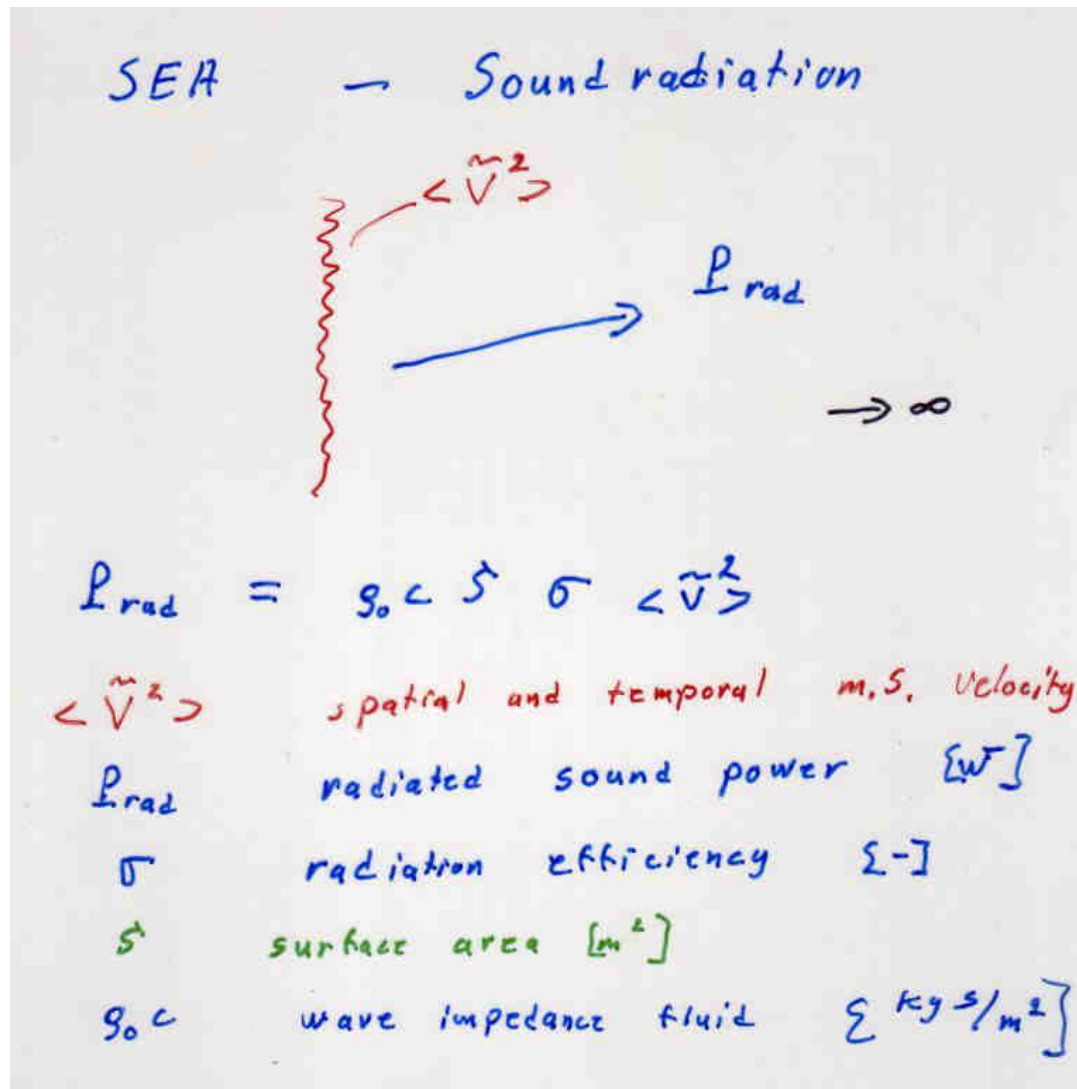 SEA — Sound radiation
< Ṽ² >
P rad
→ ∞
P rad = ρ₀ c S σ < ṽ² >
< Ṽ² > spatial and temporal m.s. velocity
P rad radiated sound power [W]
σ radiation efficiency [-]
S surface area [m²]
ρ₀ c wave impedance fluid [kg s/m²]